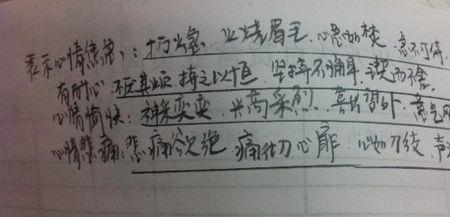 表示心情焦急：十万火急 火烧眉毛 心急如焚 急不可待
有耐心：不厌其烦 持之以恒 坚持不懈 锲而不舍
心情愉快：神采奕奕 兴高采烈 喜出望外 意气风
心情悲痛：悲痛欲绝 痛彻心扉 心如刀绞 声